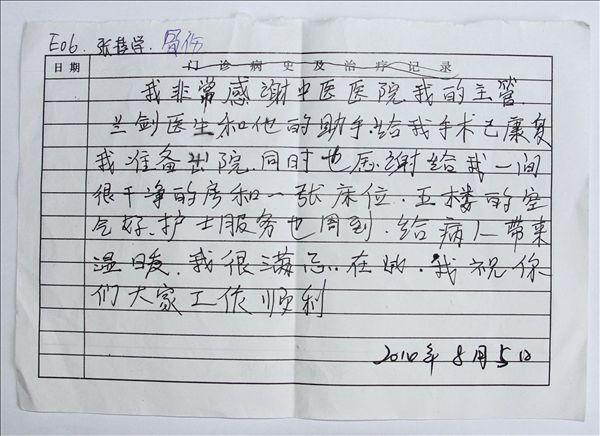 E06. 张桂学. 骨伤
门诊病史及治疗记录
日期
我非常感谢中医医院我的主管
兰剑医生和他的助手.给我手术已康复
我准备出院.同时也感谢给我一间
很干净的房和一张床位.五楼的空
气好.护士服务也周到.给病人带来
温暖.我很满意.在此.我祝你
们大家工作顺利
2010年8月5日